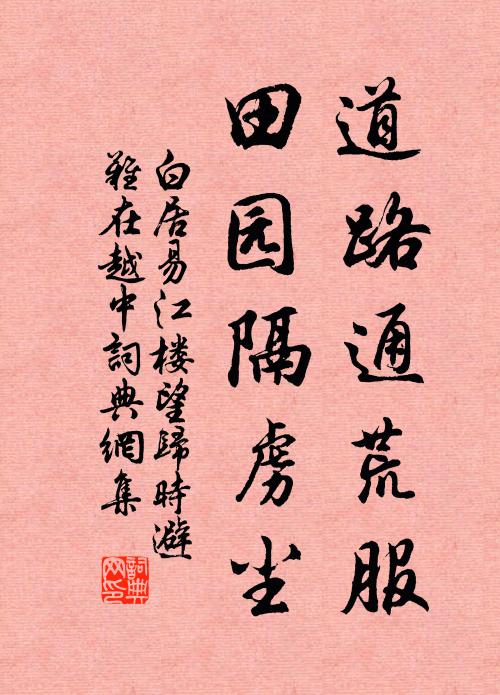 道路通荒服
田园隔虏尘
白居易江楼望歸時避
難在越中詞典網集
詞典
网印